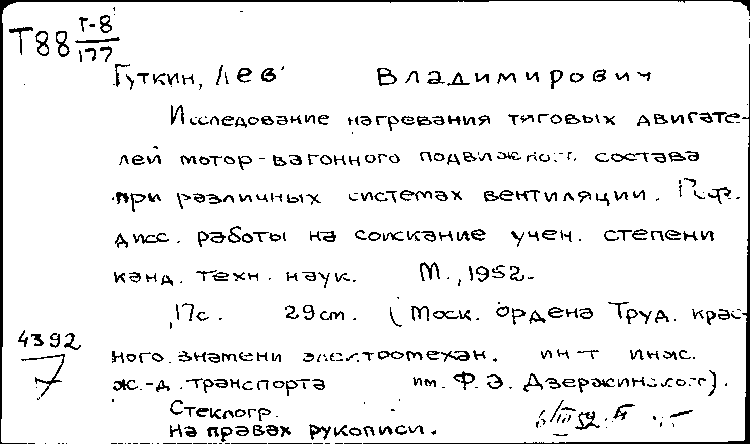 Т88 Г-8
177
Гуткин, Лев Владимирович
Исследование нагревания тяговых двигате-
лей мотор-вагонного подвижного состава
при различных системах вентиляции. Реф.
дисс. работы на соискание учен. степени
канд. техн. наук. М., 1952.
17с. 29см. (Моск. ордена Труд. крас-
4392
7
ного знамени электромехан. ин-т инж.
ж.-д. транспорта им. Ф. Э. Дзержинского).
Стеклогр.
на правах рукописи.